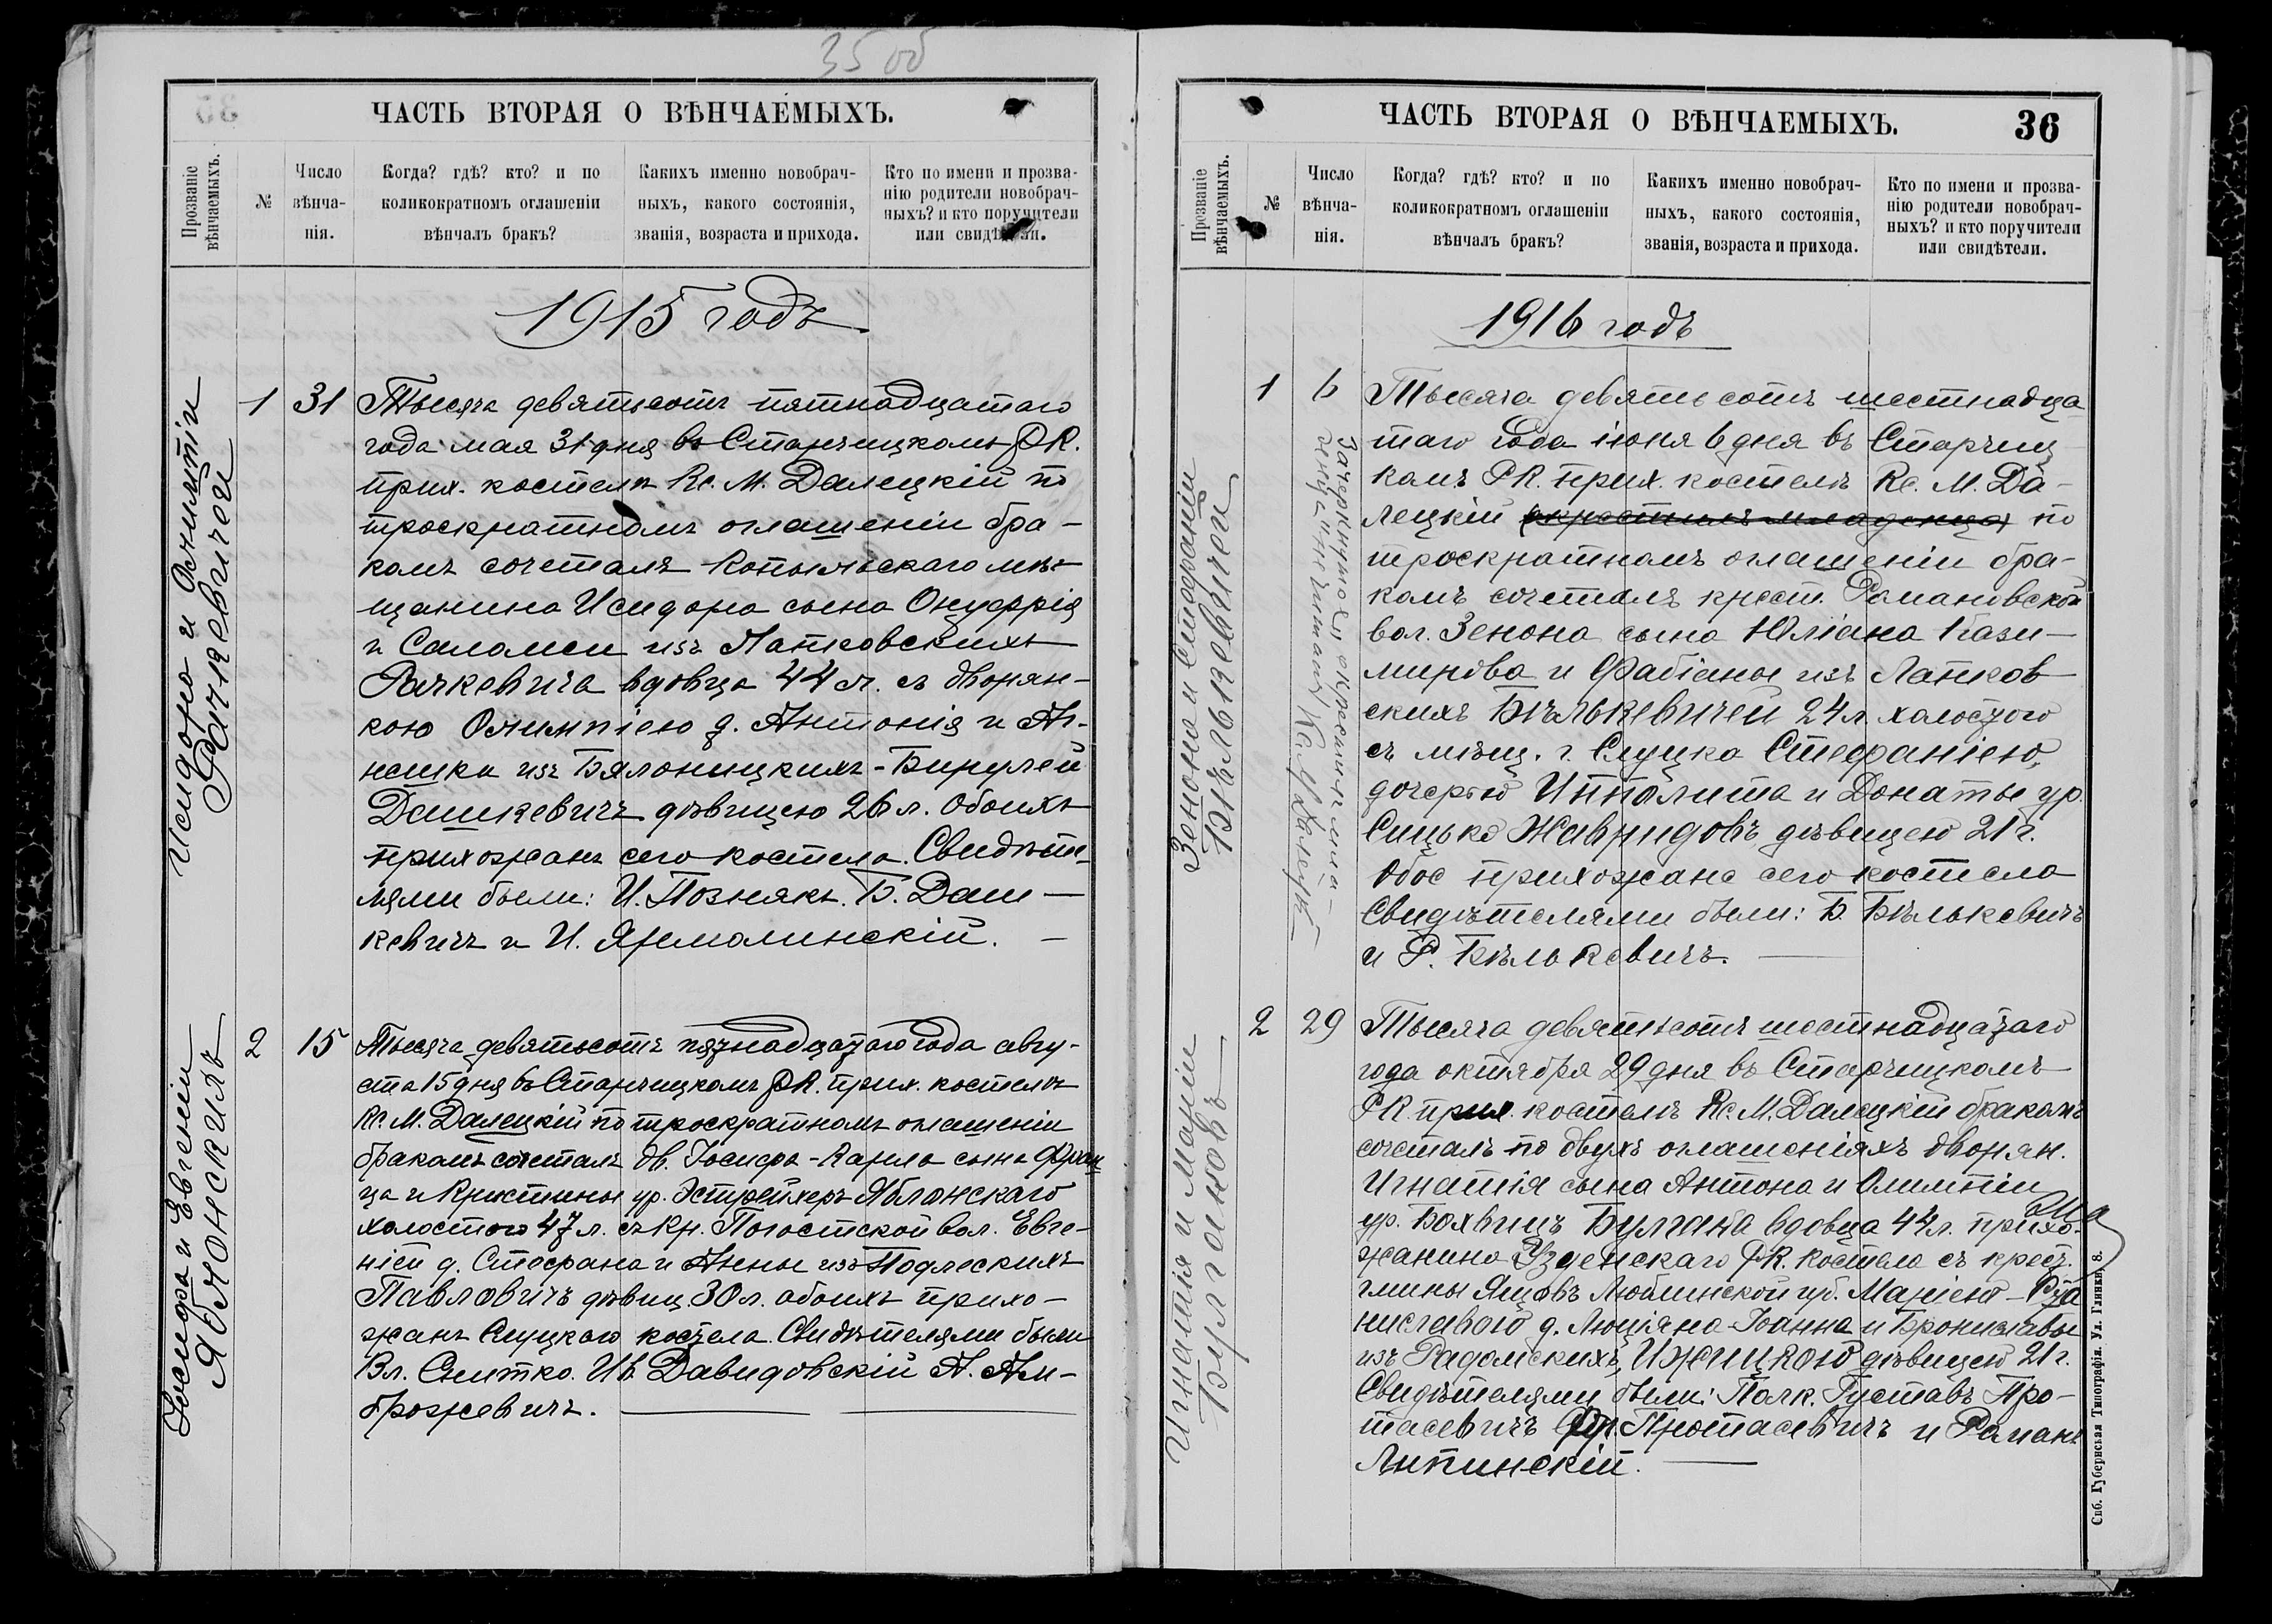 35 об
ЧАСТЬ ВТОРАЯ О ВѢНЧАЕМЫХЪ.
Прозваніе вѣнчаемыхъ.
№
Число вѣнча-нія.
Когда? гдѣ? кто? и по коликократномъ оглашеніи вѣнчалъ бракъ?
Какихъ именно новобрач-ныхъ, какого состоянія, званія, возраста и прихода.
Кто по имени и прозва-нію родители новобрач-ныхъ? и кто поручители или свидѣтели.
1915 годъ
Исидора и Олимпіи
Рачкевичей
1 31
Тысяча девятьсотъ пятнадцатаго
года мая 31 дня въ Старчицкомъ РК.
прих. костелѣ Кс. М. Далецкій по
троекратномъ оглашеніи бра-
комъ сочеталъ Копыльскаго мѣ-
щанина Исидора сына Онуфрія
и Саломеи изъ Лапковскихъ
Рачкевича вдовца 44 л. съ дворян-
кою Олимпіею д. Антонія и Аг-
нешки изъ Бялоницкихъ-Бирулей
Дашкевичъ дѣвицею 26 л. обоихъ
прихожанъ сего костела. Свидѣте-
лями были: И. Познякъ. Б. Даш-
кевичъ и И. Ярмолинскій.
Іосифа и Евгеніи
Яблонскихъ
2 15
Тысяча девятьсотъ пятнадцатаго года авгу-
ста 15 дня въ Старчицкомъ РК. прих. костелѣ
Кс. М. Далецкій по троекратномъ оглашеніи
бракомъ сочеталъ дв. Іосифа-Карла сына Фран
ца и Кристины ур. Эстрейхеръ Яблонскаго
холостого 47 л. съ кр. Погостской вол. Евге-
ніей д. Стефана и Анны изъ Подлескихъ
Павловичъ дѣвиц. 30 л. обоихъ прихо-
жанъ Слуцкаго костела. Свидѣтелями были
Вл. Снитко. Ив. Давидовскій А. Ам-
брожевичъ.
ЧАСТЬ ВТОРАЯ О ВѢНЧАЕМЫХЪ.
36
Прозваніе вѣнчаемыхъ.
№
Число вѣнча-нія.
Когда? гдѣ? кто? и по коликократномъ оглашеніи вѣнчалъ бракъ?
Какихъ именно новобрач-ныхъ, какого состоянія, званія, возраста и прихода.
Кто по имени и прозва-нію родители новобрач-ныхъ? и кто поручители или свидѣтели.
1916 годъ
Зенона и Стефаніи
Бѣлькевичей
1 6
Зачеркнутое „окрестилъ мла-
денца" не читать Кс. М. Далецкій
Тысяча девятьсотъ шестнадца
таго года іюня 6 дня въ Старчиц
комъ РК. прих. костелѣ Кс. М. Да-
лецкій (окрестилъ младенца) по
троекратномъ оглашеніи бра-
комъ сочеталъ крест. Романовской
вол. Зенона сына Юліана Кази-
мирова и Фабіаны изъ Лапков
скихъ Бѣлькевичей 24 л. холостого
съ мѣщ. г. Слуцка Стефаніею,
дочерью Ипполита и Донаты ур.
Сицько Жавридовъ дѣвицею 21 г.
Обое прихожане сего костела
Свидѣтелями были: Б. Бѣлькевичъ
и Р. Бѣлькевичъ.
Игнатія и Маріи
Булгаковъ
2 29
Тысяча девятьсотъ шестнадцатаго
года октября 29 дня въ Старчицкомъ
РК. прих. костелѣ Кс. М. Далецкій бракомъ
сочеталъ по двухъ оглашеніяхъ дворян.
Игнатія сына Антона и Олимпіи
ур. Бохвицъ Булгака вдовца 44 л. прихо-
жанина Узденскаго РК. костела съ крест.
гмины Яцовъ Люблинской губ. Маріею-Ста
ниславою д. Люціяна-Іоанна и Брониславы
изъ Радомскихъ, Ижицкою дѣвицею 21 г.
Свидѣтелями были: Полк. Густавъ Про-
тасевичъ Фр. Протасевичъ и Романъ
Липинскій.
Спб. Губернская Типографія. Ул. Глинки, 8.